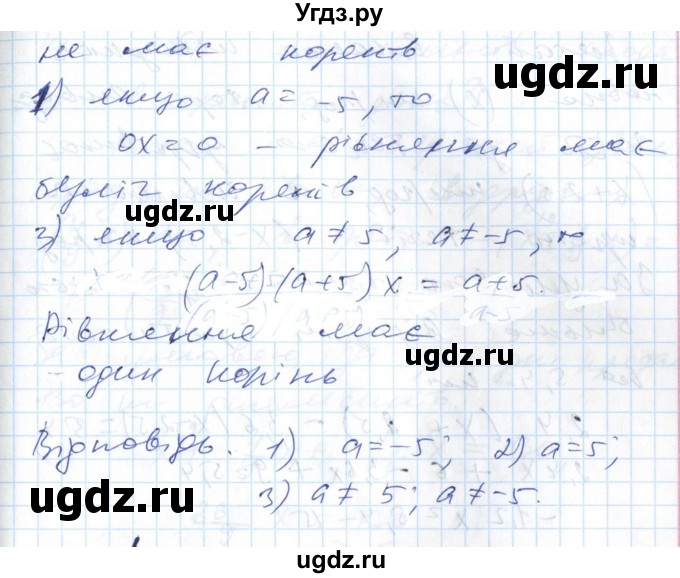 Угдз.ру
не має коренів
1) якщо a = -5, то
0x = 0 – рівняння має
безліч коренів
3) якщо a ≠ 5, a ≠ -5, то
(a-5)(a+5)x = a+5.
Рівняння має
- один корінь
Відповідь. 1) a = -5; 2) a = 5;
3) a ≠ 5; a ≠ -5.
ugdz.ru
ugdz.ru
ugdz.ru
ugdz.ru
ugdz.ru
ugdz.ru
ugdz.ru
ugdz.ru